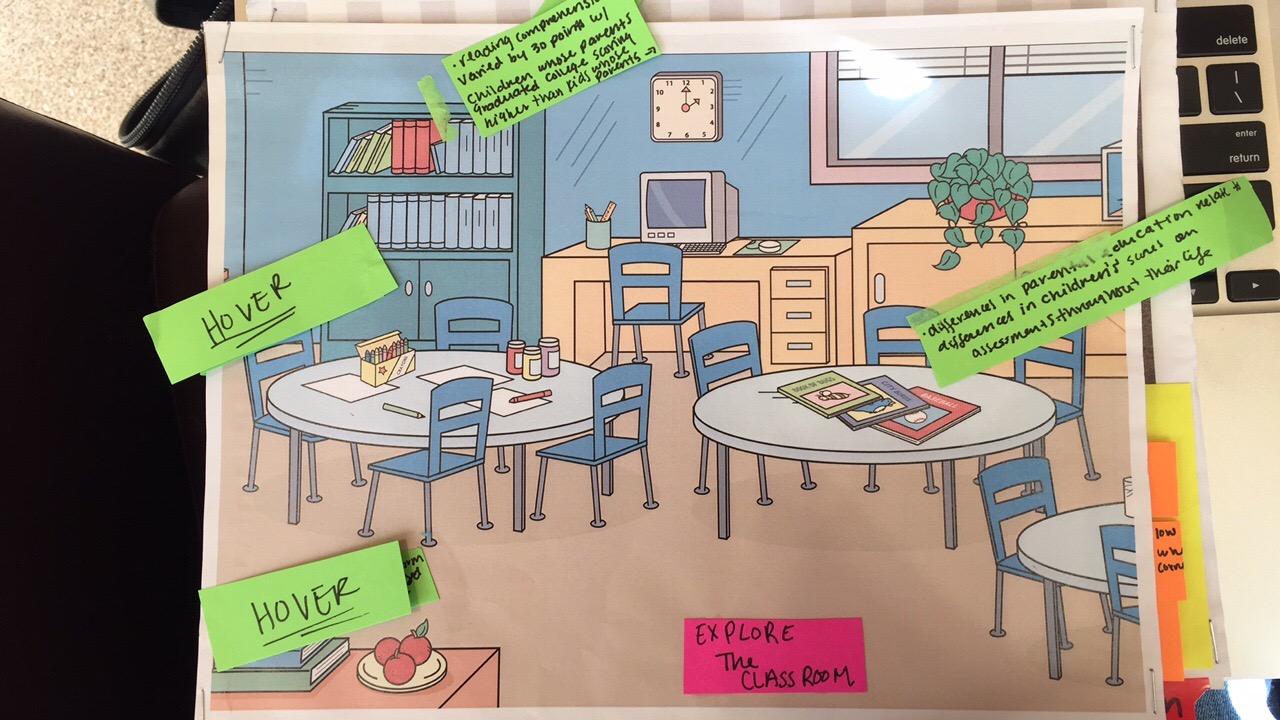 · reading comprehension
varied by 30 points w/
Children whose parents
graduated college scoring
higher than kids whose
parents →
delete
|
\
enter
return
11 12 1
10 2
9 3
8 4
7 6 5
HOVER
· differences in parental education relat
differences in children's scores on
assessments throughout their life
BOOK OF BUGS
CITY
BASEBALL
low
HOVER
EXPLORE
The
CLASSROOM